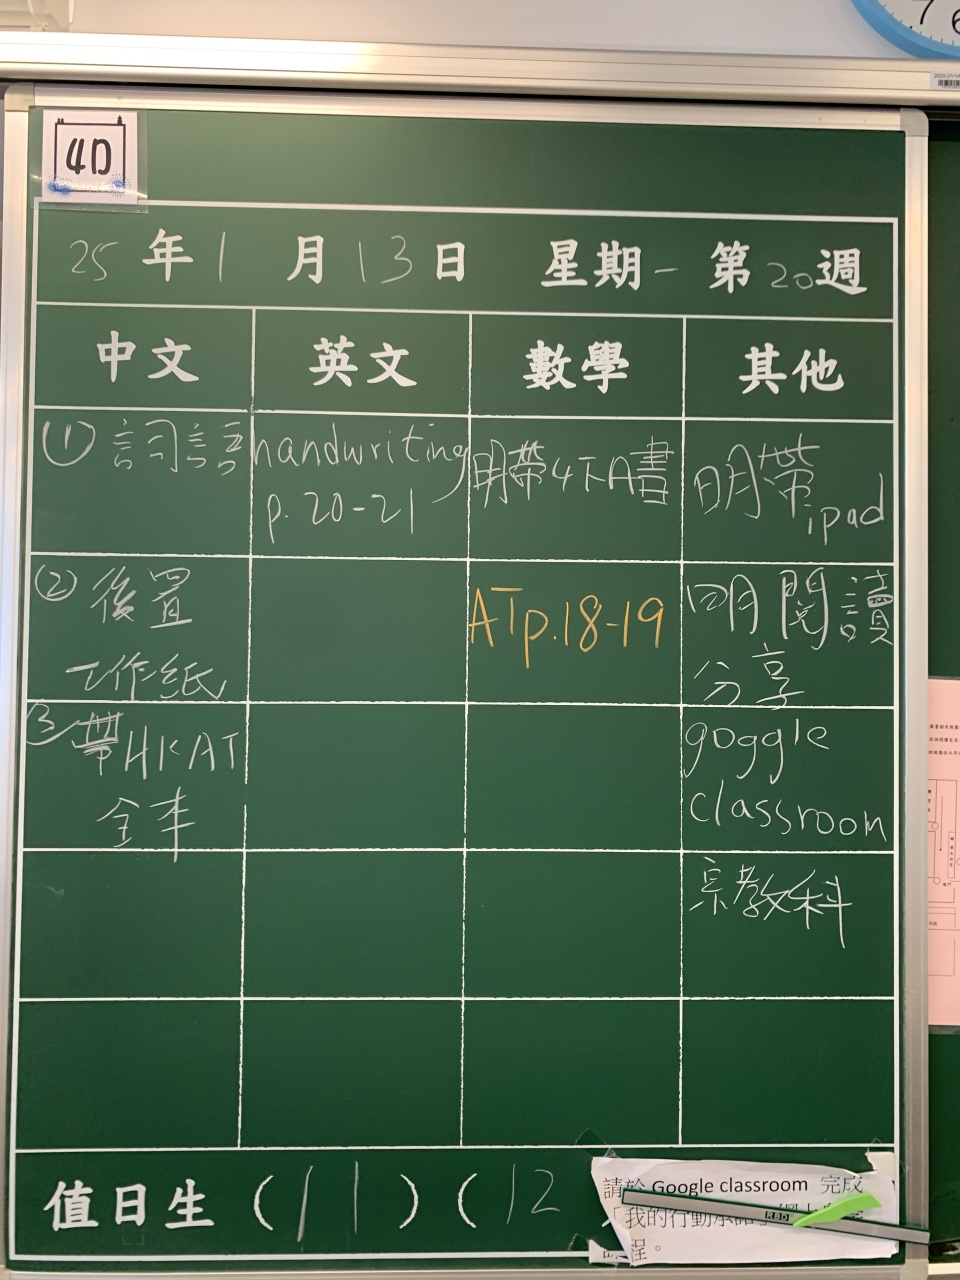 4D
25年1月13日 星期一 第20週
中文 英文 數學 其他
① 詞語
handwriting
p.20-21
明帶4下A書
明帶
ipad
② 後置
工作紙
AT p.18-19
明閱讀
分享
③ 帶HKAT
全本
goggle
classroom
宗教科
值日生 (11) (12
請於 Google classroom 完成
「我的行動承諾
程。
76